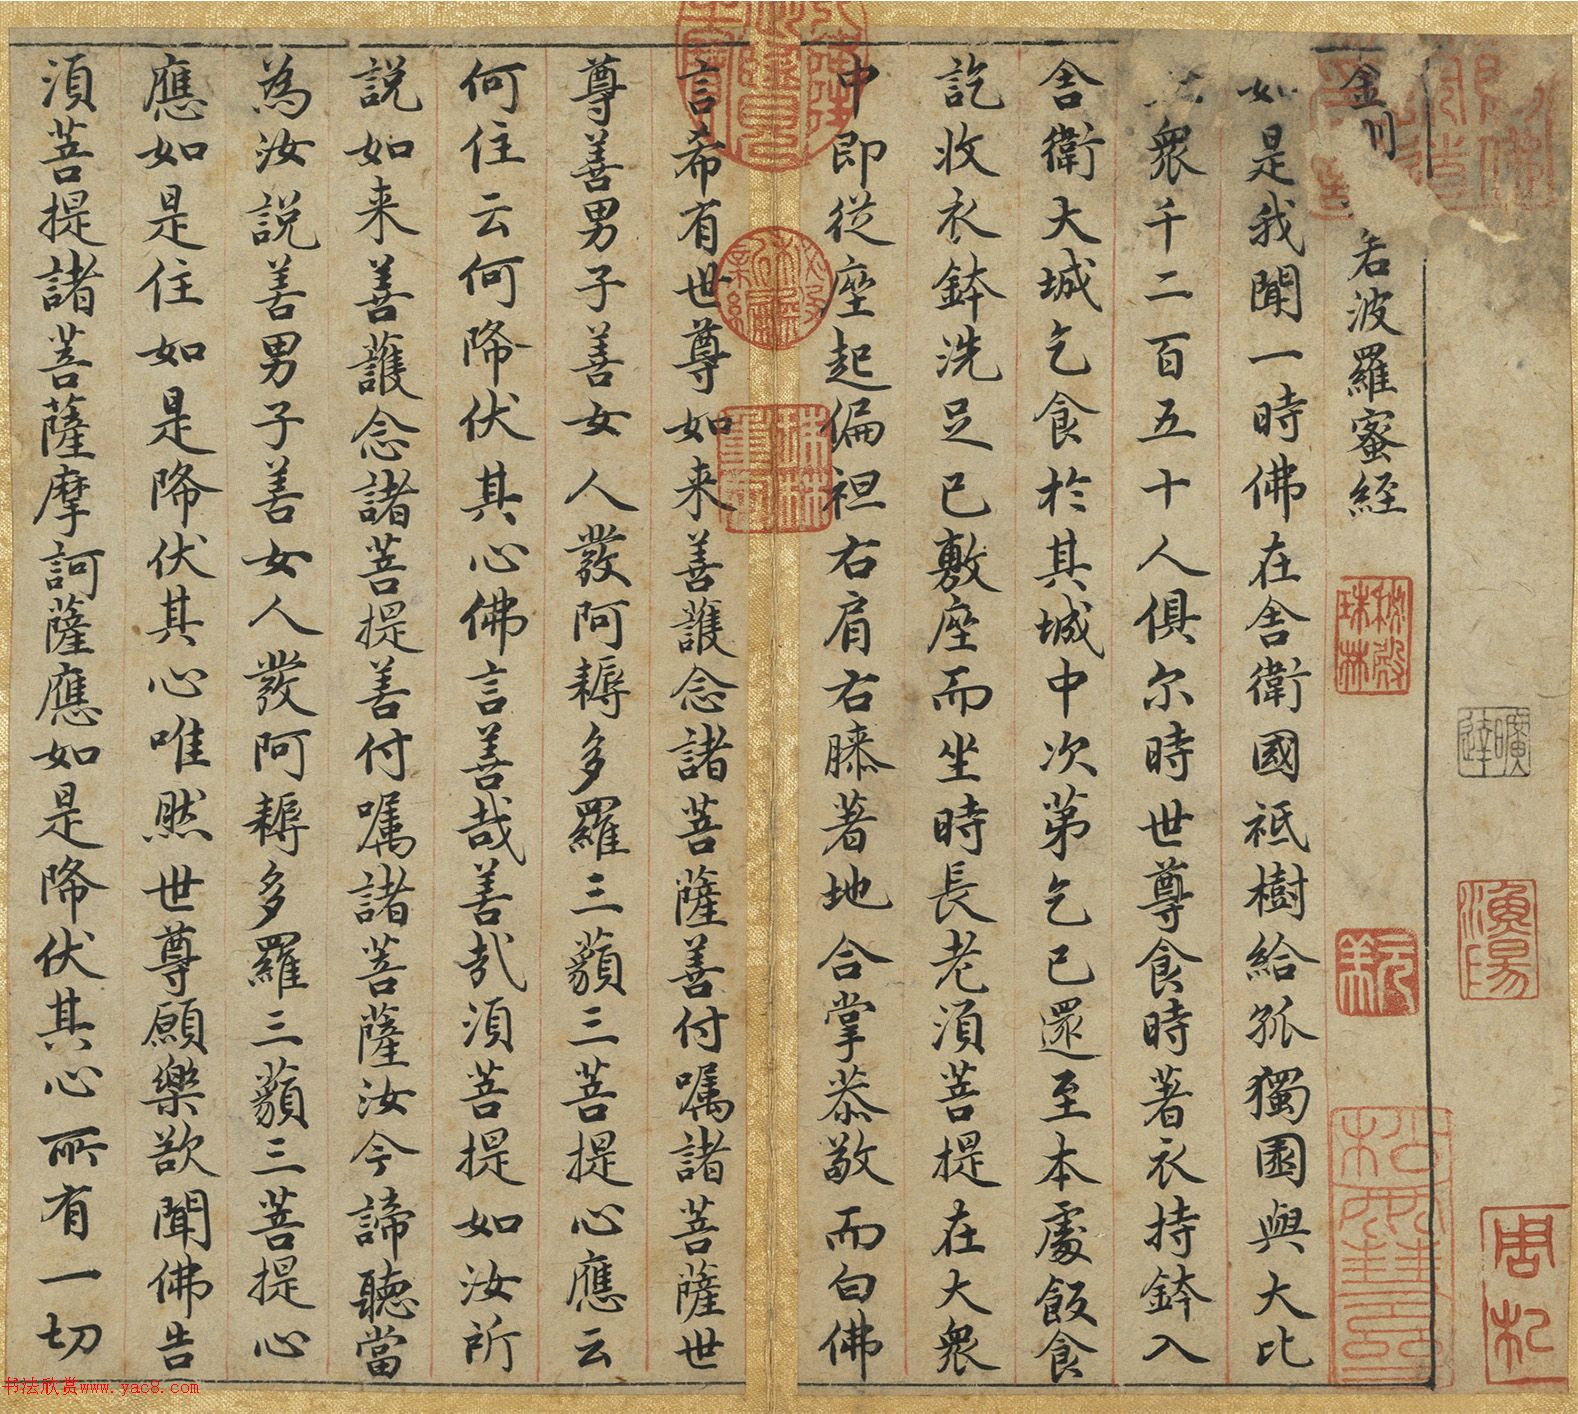 金剛
若波羅蜜經
如是我聞一時佛在舍衛國祇樹給孤獨園與大比
衆千二百五十人俱尔時世尊食時著衣持鉢入
舍衛大城乞食於其城中次第乞已還至本處飯食
訖收衣鉢洗足已敷座而坐時長老須菩提在大衆
中即從座起偏袒右肩右膝著地合掌恭敬而白佛
言希有世尊如来善護念諸菩薩善付嘱諸菩薩世
尊善男子善女人發阿耨多羅三藐三菩提心應云
何住云何降伏其心佛言善哉善哉須菩提如汝所
説如来善護念諸菩提善付嘱諸菩薩汝今諦聽當
為汝説善男子善女人發阿耨多羅三藐三菩提心
應如是住如是降伏其心唯然世尊願樂欲聞佛告
須菩提諸菩薩摩訶薩應如是降伏其心所有一切
曠達
漁陽
珠林
秘殿
书法欣赏www.yac8.com